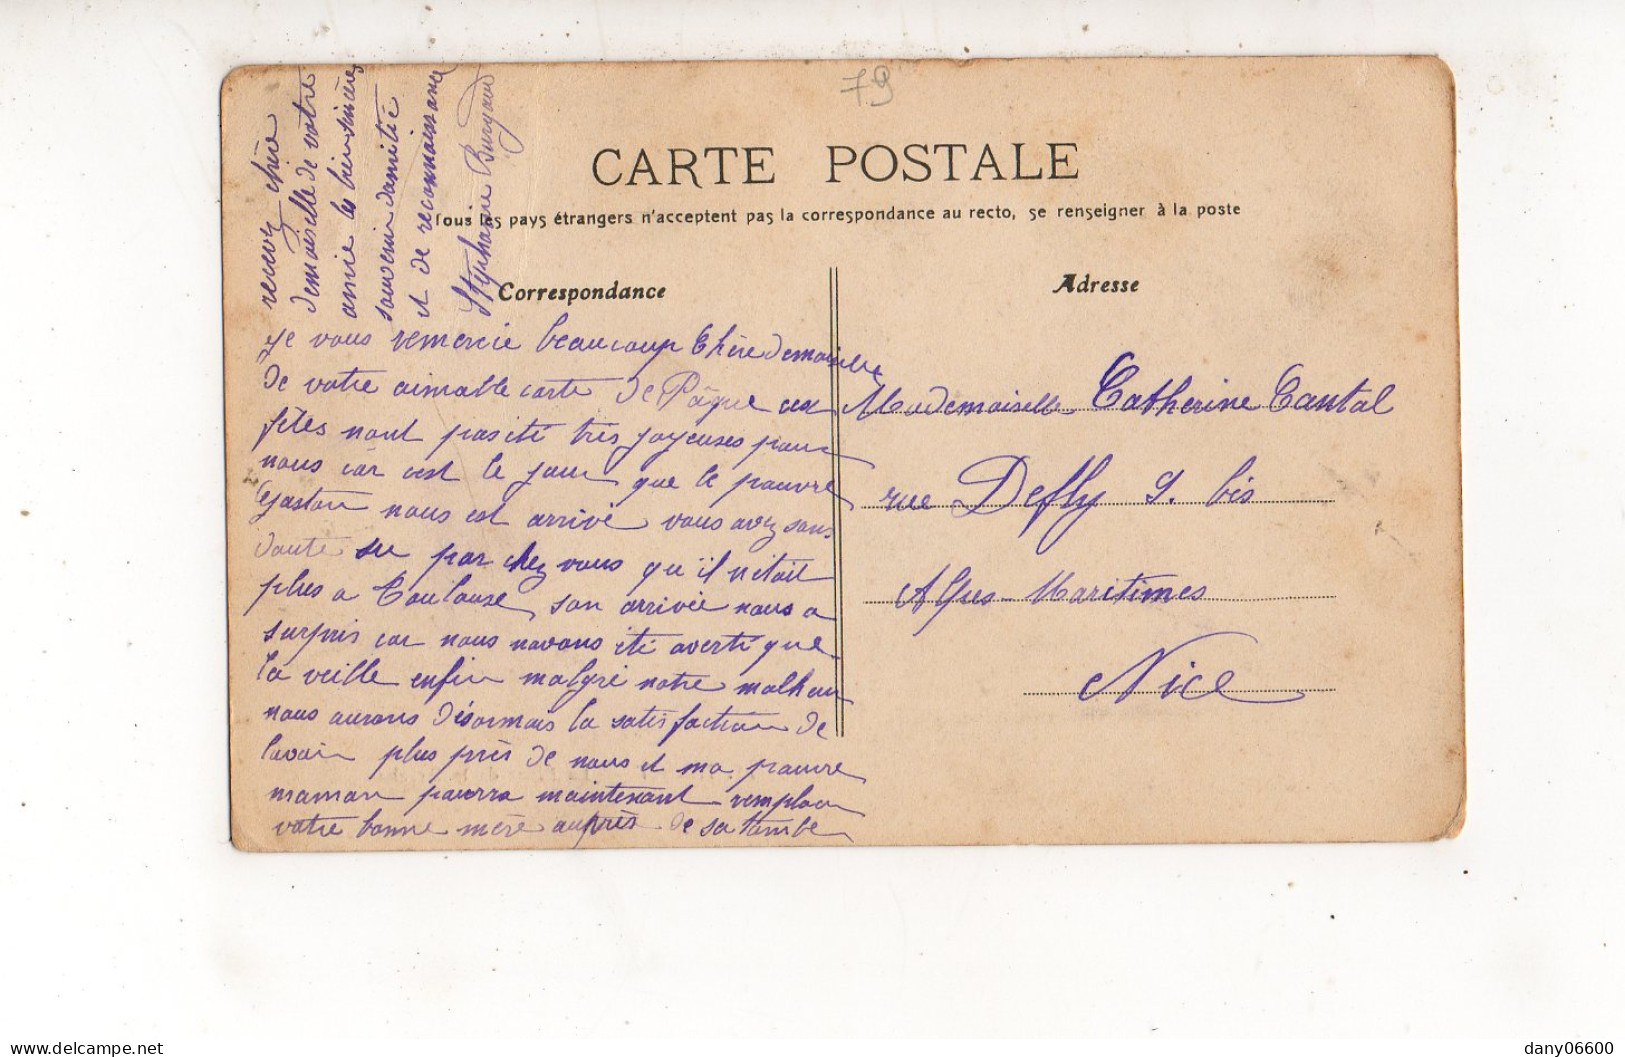 79
CARTE POSTALE
Tous les pays étrangers n'acceptent pas la correspondance au recto, se renseigner à la poste
Correspondance
Adresse
je vous remercie beaucoup Chère demoiselle
de votre aimable carte de Pâque ces
fêtes nont pas été très joyeuses pour
nous car cest le jour que le pauvre
Gaston nous est arrivé vous avez sans
doute su par chez vous qu'il nétait
plus a Toulouse, son arrivée nous a
surpris car nous navons été averti que
la veille enfin malgré notre malheur
nous aurons désormais la satisfaction de
lavoir plus près de nous et ma pauvre
maman pourra maintenant remplacer
votre bonne mère auprès de sa tombe
recevez chère
demoiselle de votre
amie les bien sincères
souvenir damitié
et de reconnaissance
Stéphanie Burgaud
Mademoiselle Catherine Cantal
rue Defly 9. bis
Alpes-Maritimes
Nice
delcampe.net
dany06600